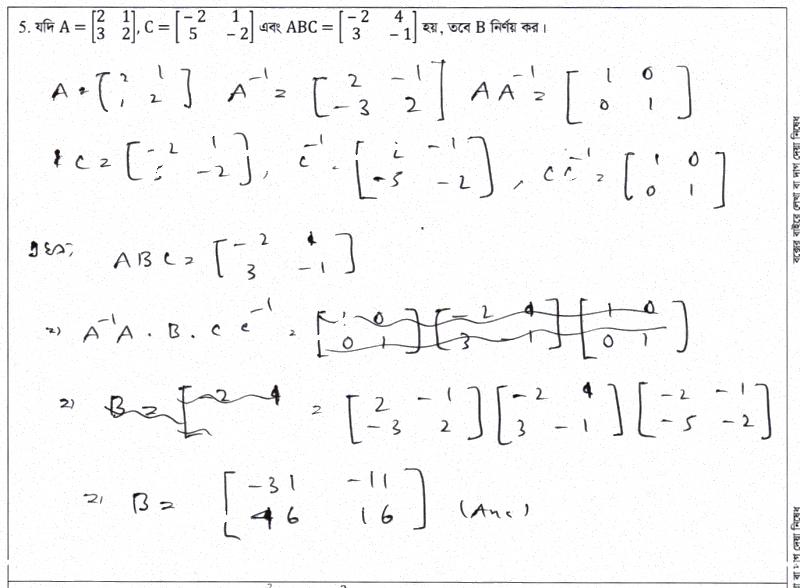 5. যদি A = [2 1; 3 2], C = [-2 1; 5 -2] এবং ABC = [-2 4; 3 -1] হয়, তবে B নির্ণয় কর।
A = [2 1; , 2] A⁻¹ = [2 -1; -3 2] AA⁻¹ = [1 0; 0 1]
C = [-2 1; 5 -2], C⁻¹ = [2 -1; -5 -2], CC⁻¹ = [1 0; 0 1]
ABC = [-2 4; 3 -1]
=> A⁻¹A . B . C C⁻¹ = [1 0; 0 1] [-2 4; 3 -1] [1 0; 0 1]
=> B = [-2 4 = [2 -1; -3 2] [-2 4; 3 -1] [-2 -1; -5 -2]
=> B = [-31 -11; 46 16] (Ans)
বক্সের বাইরে লেখা বা দাগ দেয়া নিষেধ
বা দাগ দেয়া নিষেধ